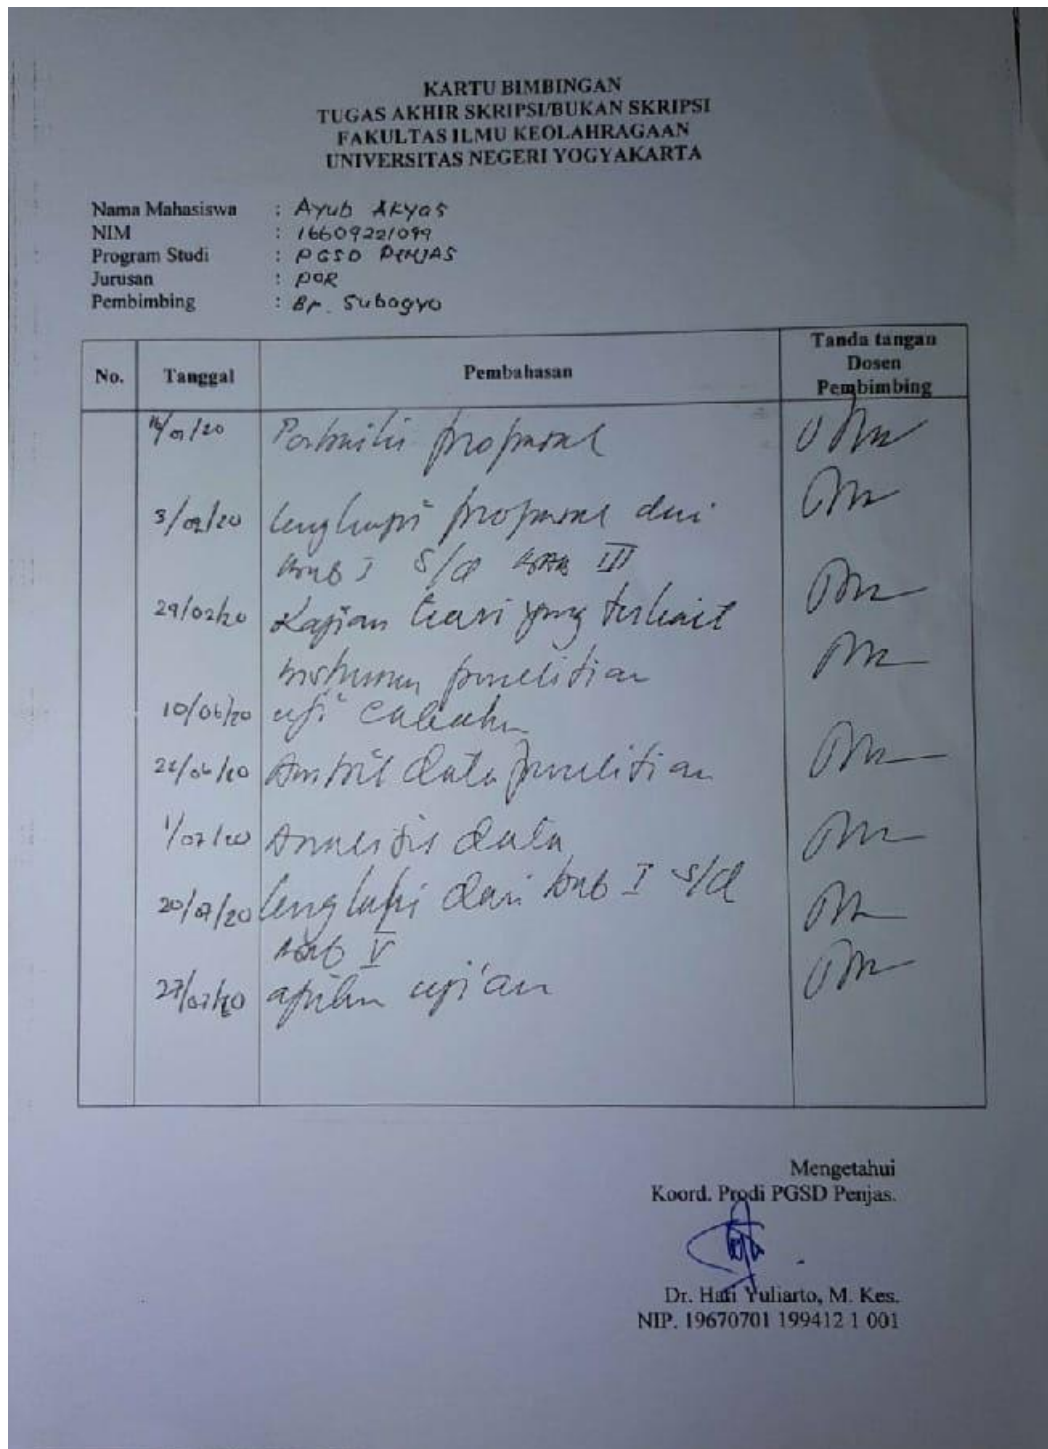 KARTU BIMBINGAN
TUGAS AKHIR SKRIPSI/BUKAN SKRIPSI
FAKULTAS ILMU KEOLAHRAGAAN
UNIVERSITAS NEGERI YOGYAKARTA
Nama Mahasiswa : Ayub Akyas
NIM : 16609221099
Program Studi : PGSD PENJAS
Jurusan : POR
Pembimbing : Bp. Subagyo
No. Tanggal Pembahasan Tanda tangan Dosen Pembimbing
/01/20 proposal
3/02/20 lengkapi proposal dari
bab I s/d bab III
29/02/20 Kajian teori yang terkait
instrumen penelitian
10/06/20 uji
/06/20 Ambil data penelitian
1/07/20 Analisis data
20/07/20 lengkapi dari bab I s/d
bab V
27/07/20 ujian
Mengetahui
Koord. Prodi PGSD Penjas.
Dr. Hari Yuliarto, M. Kes.
NIP. 19670701 199412 1 001